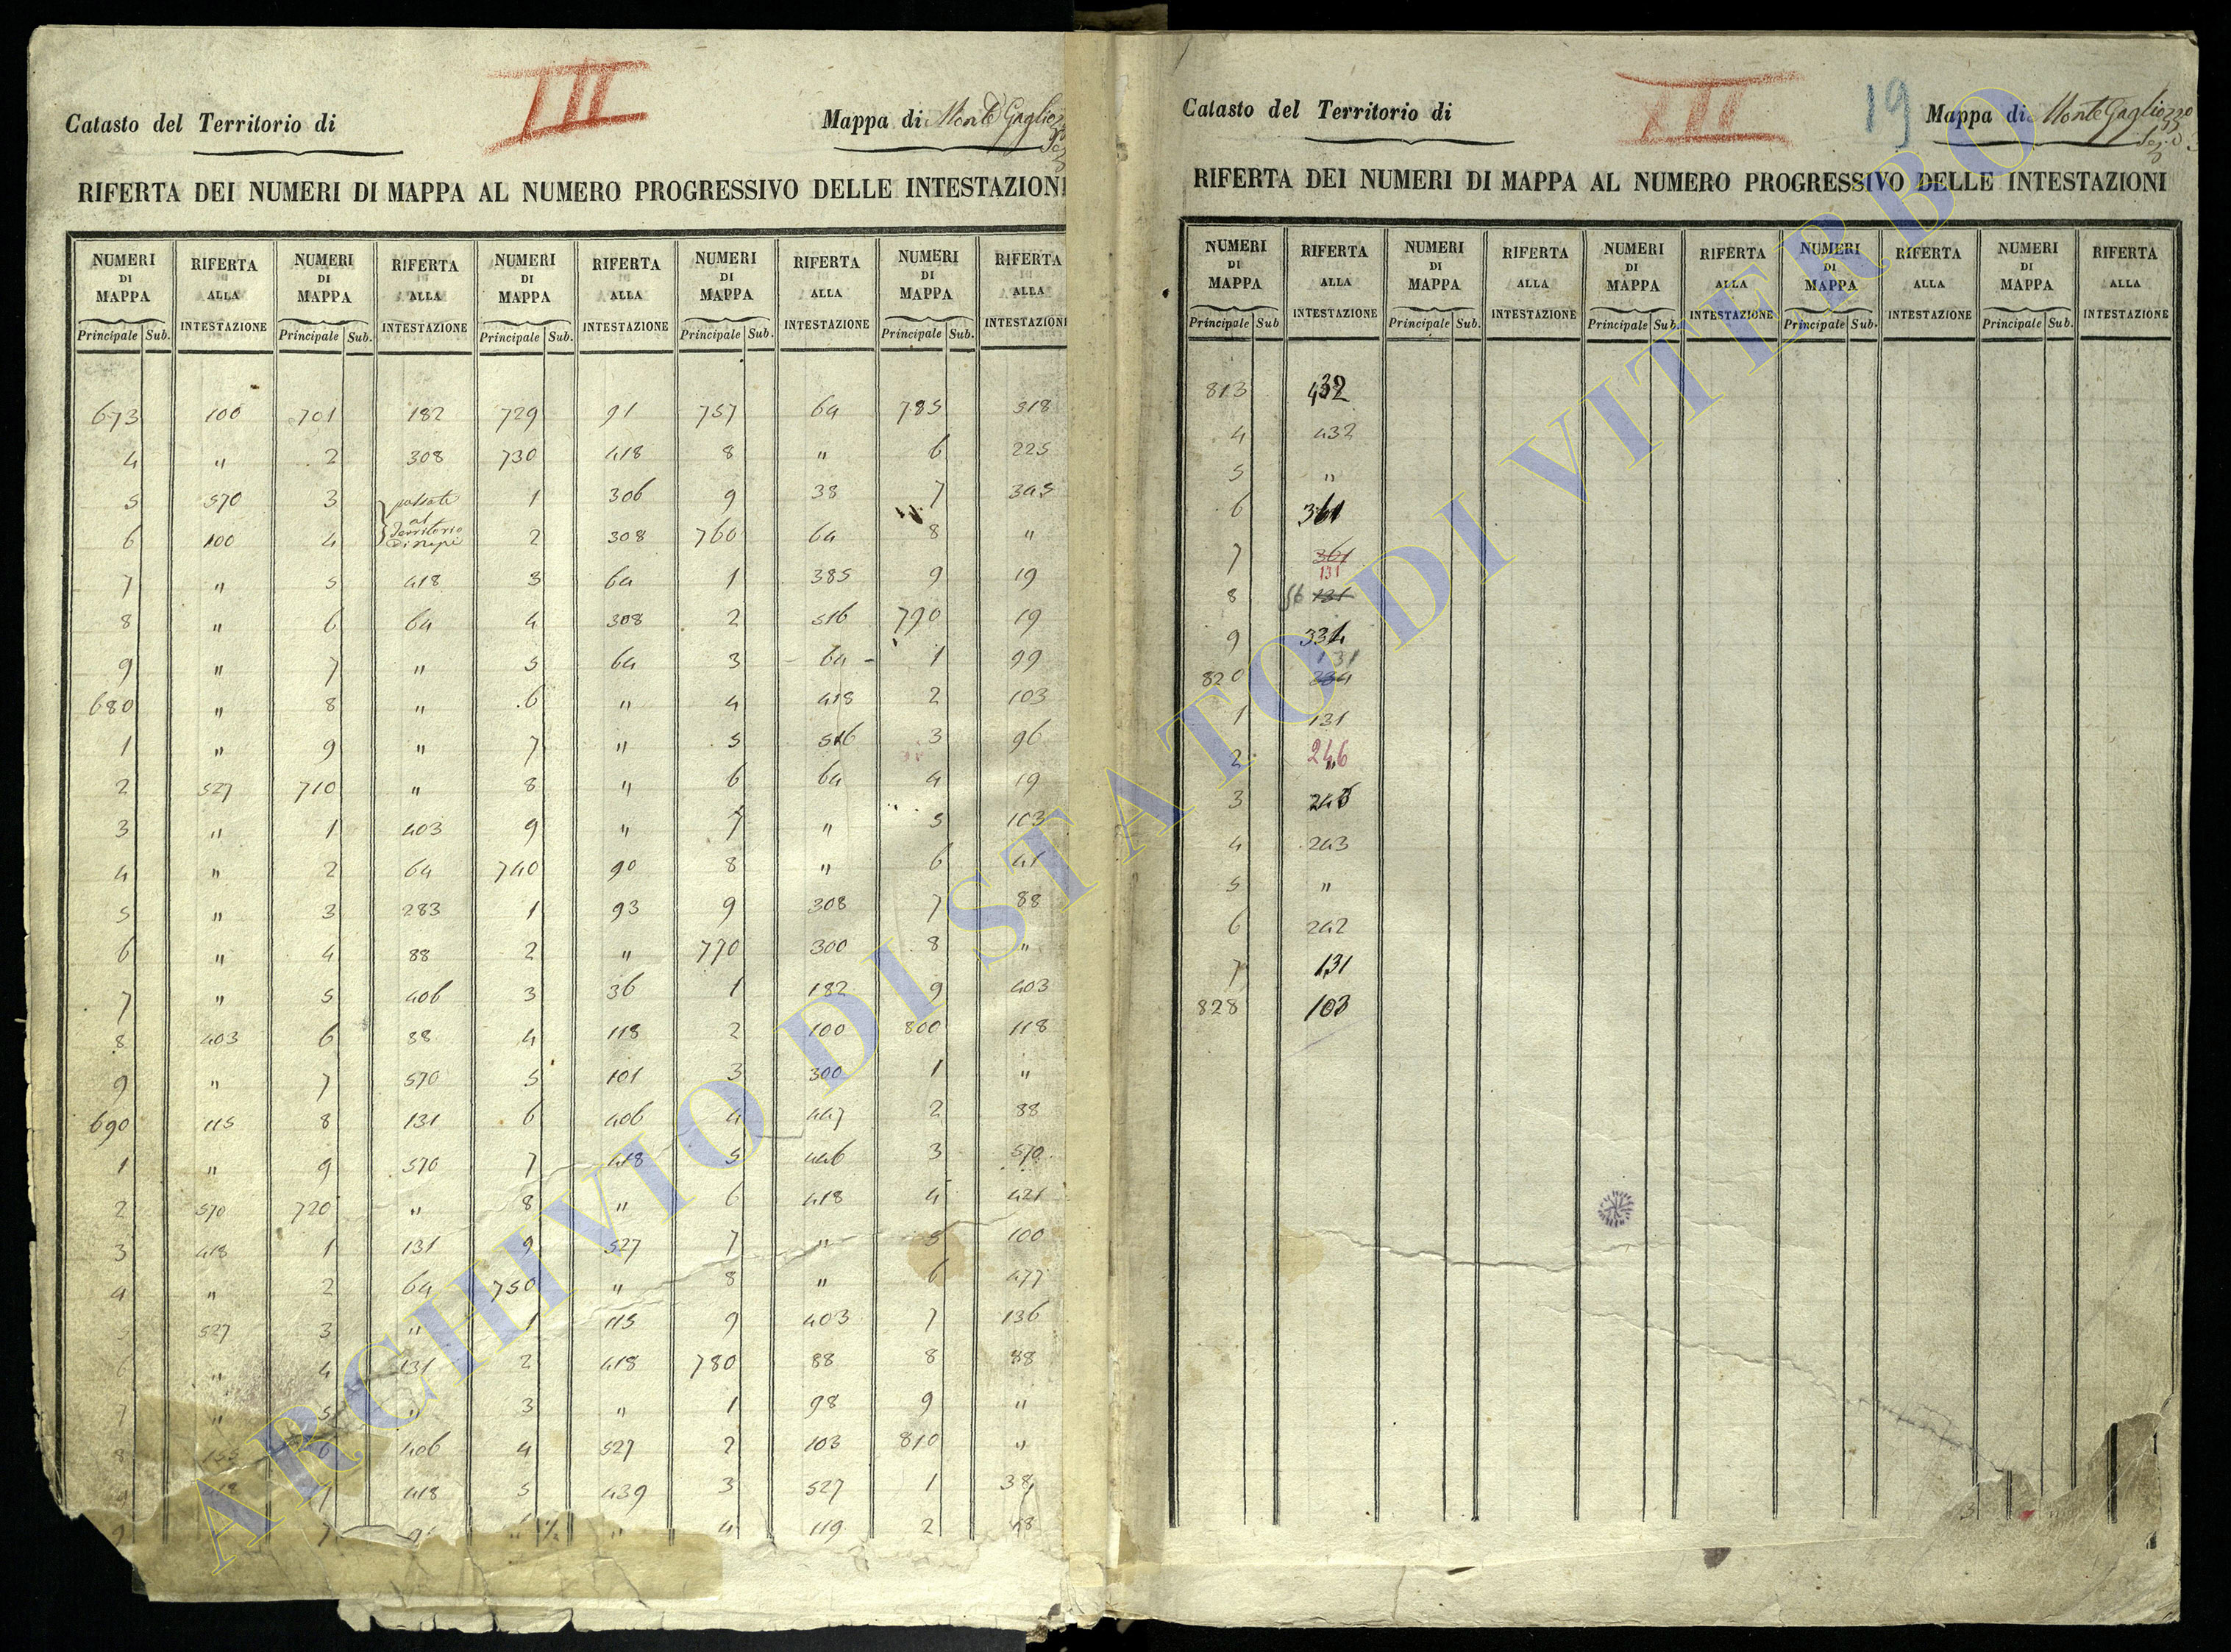 III
Catasto del Territorio di
Mappa di Monte Gaglio
RIFERTA DEI NUMERI DI MAPPA AL NUMERO PROGRESSIVO DELLE INTESTAZIONI
NUMERI DI MAPPA RIFERTA ALLA INTESTAZIONE NUMERI DI MAPPA RIFERTA ALLA INTESTAZIONE NUMERI DI MAPPA RIFERTA ALLA INTESTAZIONE NUMERI DI MAPPA RIFERTA ALLA INTESTAZIONE NUMERI DI MAPPA RIFERTA ALLA INTESTAZIONE
Principale Sub. Principale Sub. Principale Sub. Principale Sub. Principale Sub.
673 100 701 182 729 91 757 64 785 318
4 " 2 308 730 418 8 " 6 225
5 570 3 passati 1 306 9 38 7 345
al
6 100 4 Territorio 2 308 760 64 8 "
di Nepi
7 " 5 418 3 64 1 385 9 19
8 " 6 64 4 308 2 516 790 19
9 " 7 " 5 64 3 - 64 - 1 99
680 " 8 " 6 " 4 418 2 103
1 " 9 " 7 " 5 516 3 96
2 527 710 " 8 " 6 64 4 19
3 " 1 403 9 " 7 " 5 103
4 " 2 64 740 90 8 " 6 41
5 " 3 283 1 93 9 308 7 88
6 " 4 88 2 " 770 300 8 "
7 " 5 406 3 36 1 182 9 403
8 403 6 88 4 118 2 100 800 118
9 " 7 570 5 101 3 300 1 "
690 115 8 131 6 406 4 447 2 88
1 " 9 570 7 418 5 446 3 570
2 570 720 " 8 " 6 418 4 421
3 418 1 131 9 527 7 " 5 100
4 " 2 64 750 " 8 " 6 477
5 527 3 " 1 115 9 403 7 136
6 " 4 131 2 418 780 88 8 88
7 " 5 " 3 " 1 98 9 "
8 6 406 4 527 2 103 810 "
418 5 439 3 527 1 38
" 4 119 2
XIII
19
Catasto del Territorio di
Mappa di Monte Gagliozzo
Sez.
RIFERTA DEI NUMERI DI MAPPA AL NUMERO PROGRESSIVO DELLE INTESTAZIONI
NUMERI DI MAPPA RIFERTA ALLA INTESTAZIONE NUMERI DI MAPPA RIFERTA ALLA INTESTAZIONE NUMERI DI MAPPA RIFERTA ALLA INTESTAZIONE NUMERI DI MAPPA RIFERTA ALLA INTESTAZIONE NUMERI DI MAPPA RIFERTA ALLA INTESTAZIONE
Principale Sub Principale Sub. Principale Sub. Principale Sub. Principale Sub.
813 432
4 432
5 "
6 361
7 361
131
8 56 131
9 334
131
820 334
1 131
2 246
"
3 243
4 243
5 "
6 242
7 131
828 103
ARCHIVIO DI STATO DI VITERBO